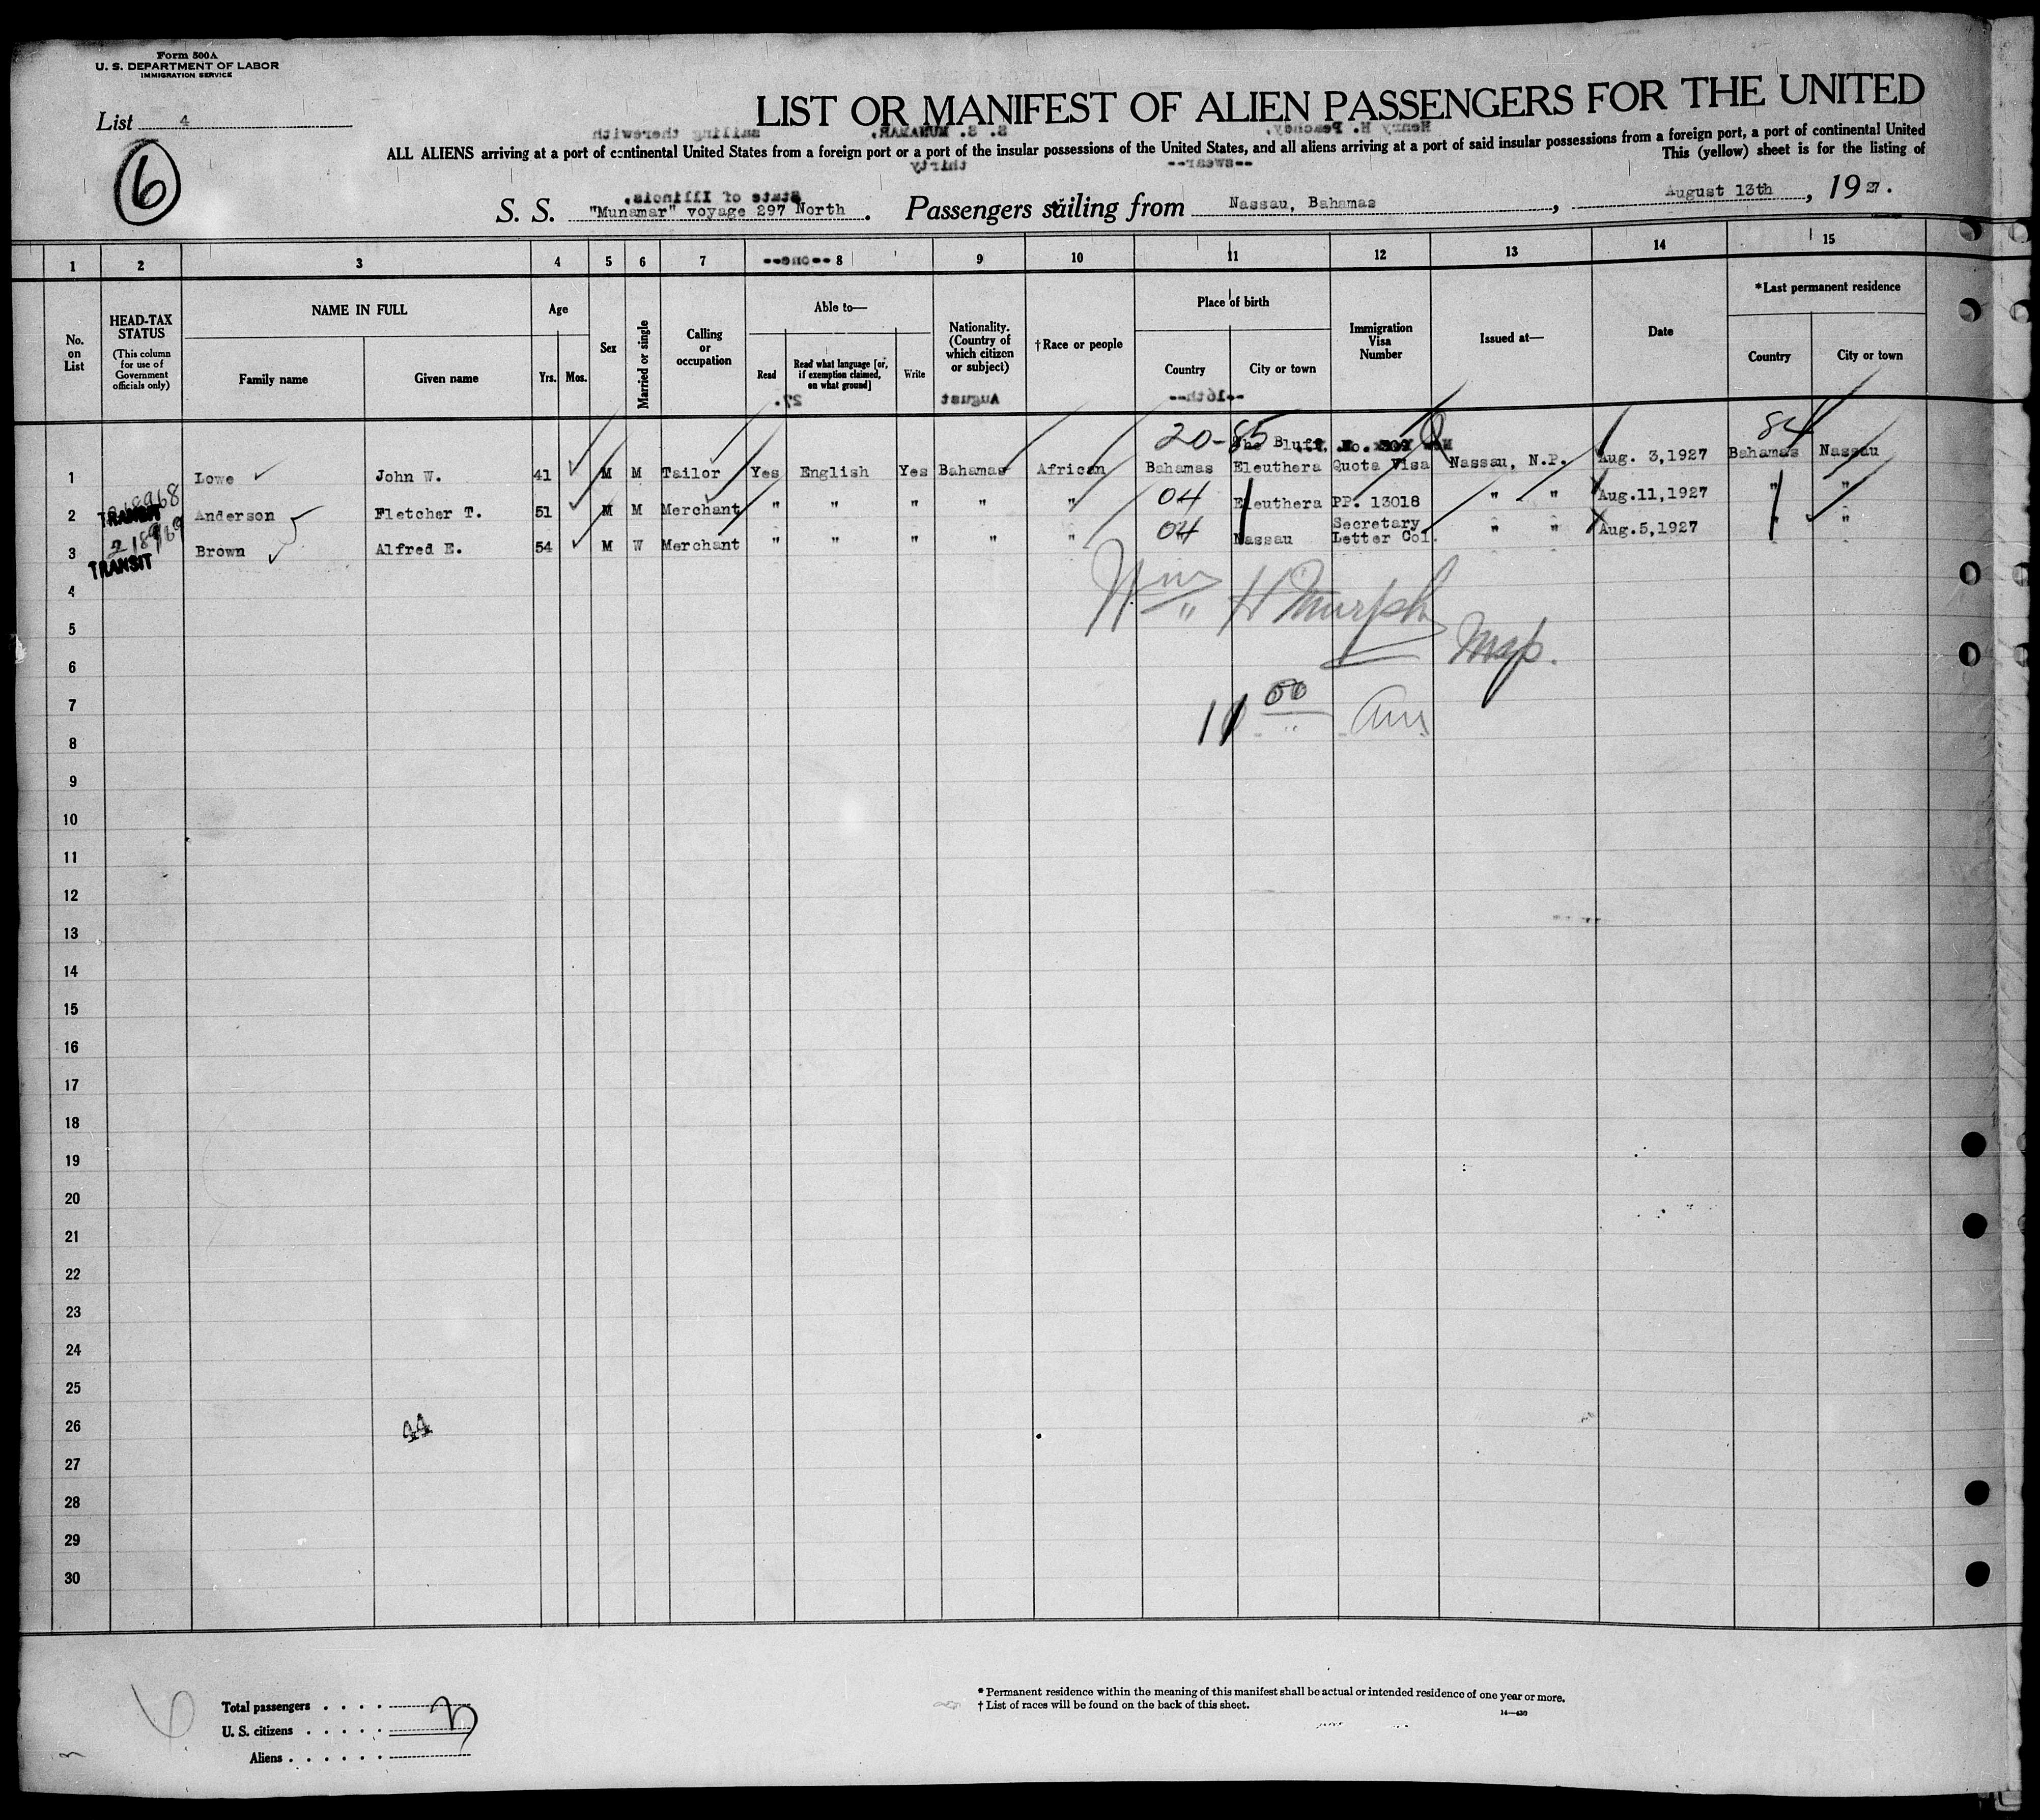 Form 500A
U. S. DEPARTMENT OF LABOR
IMMIGRATION SERVICE
List 4
6
LIST OR MANIFEST OF ALIEN PASSENGERS FOR THE UNITED
ALL ALIENS arriving at a port of continental United States from a foreign port or a port of the insular possessions of the United States, and all aliens arriving at a port of said insular possessions from a foreign port, a port of continental United
This (yellow) sheet is for the listing of
S. S. "Munamar" voyage 297 North. Passengers sailing from Nassau, Bahamas, August 13th, 1927.
1 2 3 4 5 6 7 8 9 10 11 12 13 14 15
No. on List
HEAD-TAX STATUS
(This column for use of Government officials only)
NAME IN FULL
Family name
Given name
Age
Yrs. Mos.
Sex
Married or single
Calling or occupation
Able to—
Read
Read what language [or, if exemption claimed, on what ground]
Write
Nationality. (Country of which citizen or subject)
†Race or people
Place of birth
Country
City or town
Immigration Visa Number
Issued at—
Date
*Last permanent residence
Country
City or town
20-85 The Bluff, 84
1 Lowe John W. 41 M M Tailor Yes English Yes Bahamas African Bahamas Eleuthera Quota Visa Nassau, N.P. Aug. 3,1927 Bahamas Nassau
2 TRANSIT Anderson Fletcher T. 51 M M Merchant " " " " " 04 Eleuthera PP. 13018 " " Aug.11,1927 " "
3 TRANSIT Brown Alfred E. 54 M W Merchant " " " " " 04 Nassau Secretary Letter Col. " " Aug.5,1927 " "
4
Wm H Murph
5
Map.
6
7
8
9
10
11
12
13
14
15
16
17
18
19
20
21
22
23
24
25
26
44
27
28
29
30
6
Total passengers . . . .
U. S. citizens . . . . .
Aliens . . . . . .
* Permanent residence within the meaning of this manifest shall be actual or intended residence of one year or more.
† List of races will be found on the back of this sheet.
14—430